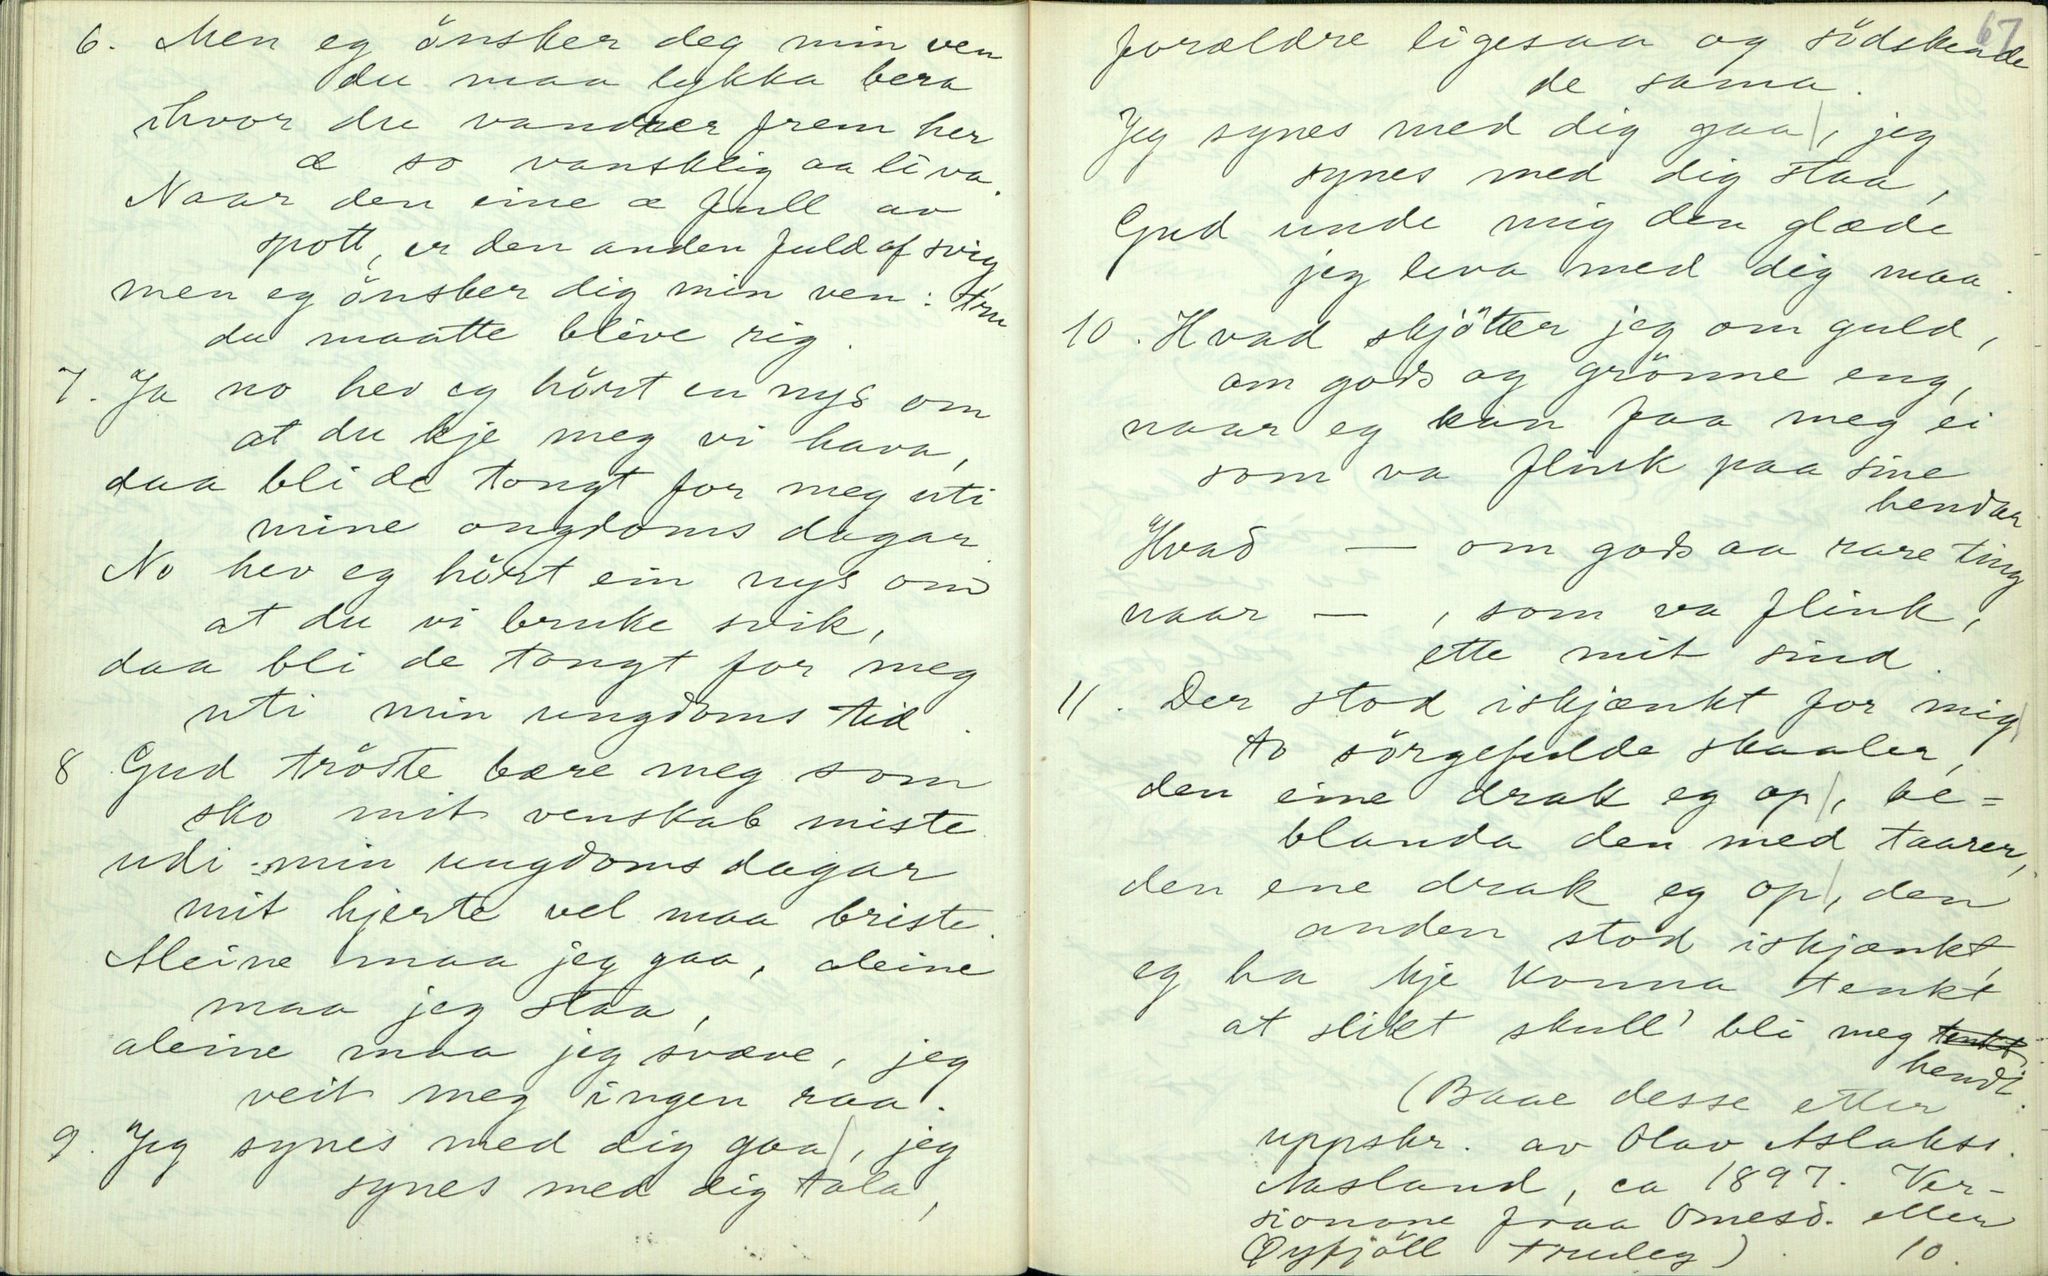 6. Men eg önsker deg min ven
du maa lykka bera
ihvor du vandrer frem her
æ so vansklig aa liva.
Naar den eine æ full av
spott, er den anden fuld af svig,
men eg önsker dig min ven: tru
du maatte blive rig.
7. Ja no hev eg hört en nys om
at du kje meg vi hava,
daa bli de tongt for meg uti
mine ongdoms dagar
No hev eg hört ein nys om
at du vi bruke svik,
daa bli de tongt for meg
uti min ungdoms tid.
8 Gud tröste bære meg som
sko mit venskab miste
udi min ungdoms dagar
mit hjerte vel maa briste.
Aleine maa jeg gaa, aleine
maa jeg staa,
aleine maa jeg svæve, jeg
veit meg ingen raa.
9. Jeg synes med dig gaa, jeg
synes med dig tala,
67
forældre ligesaa og södskende
de sama.
Jeg synes med dig gaa, jeg
synes med dig staa,
Gud unde mig den glæde
jeg leva med dig maa.
10. Hvad skjötter jeg om guld,
om gods og grönne eng,
naar eg kan faa meg ei
som va flink paa sine
hendar
Hvad — om gods aa rare ting
naar — , som va flink,
ette mit sind.
11. Der stod iskjænkt for mig
to sörgefulde skaaler,
den eine drak eg op, be=
blanda den med taarer,
den ene drak eg op, den
anden stod iskjænkt,
eg ha kje konna tenkt
at slikt skull' bli meg tenkt
hendt.
(Baae desse etter
uppskr. av Olav Aslakss.
Aasland, ca 1897. Ver-
sionane fraa Omesd. eller
Öyfjöll truleg). 10.